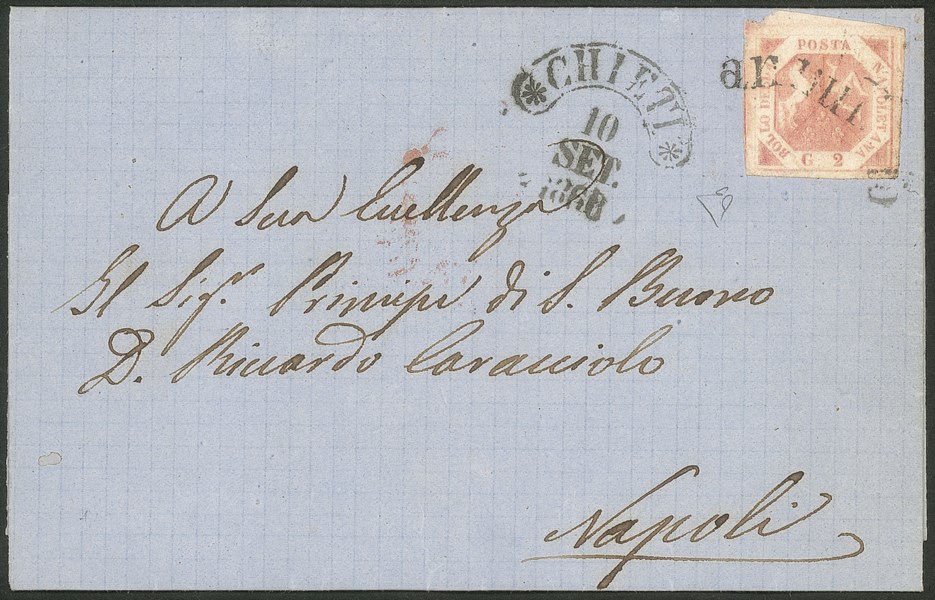 CHIETI
10
SET.
1860
BOLLO DELLA POSTA NAPOLETANA
G 2
A Sua Eccellenza
Il Sigr. Principe di S. Buono
D. Riccardo Caracciolo
Napoli